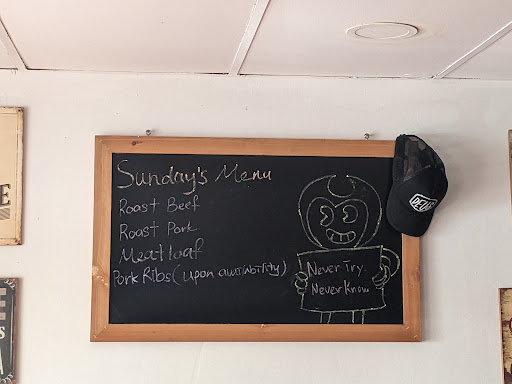 Sunday's Menu
Roast Beef
Roast Pork
Meatloaf
Never Try.
Never Know.
Pork Ribs (upon